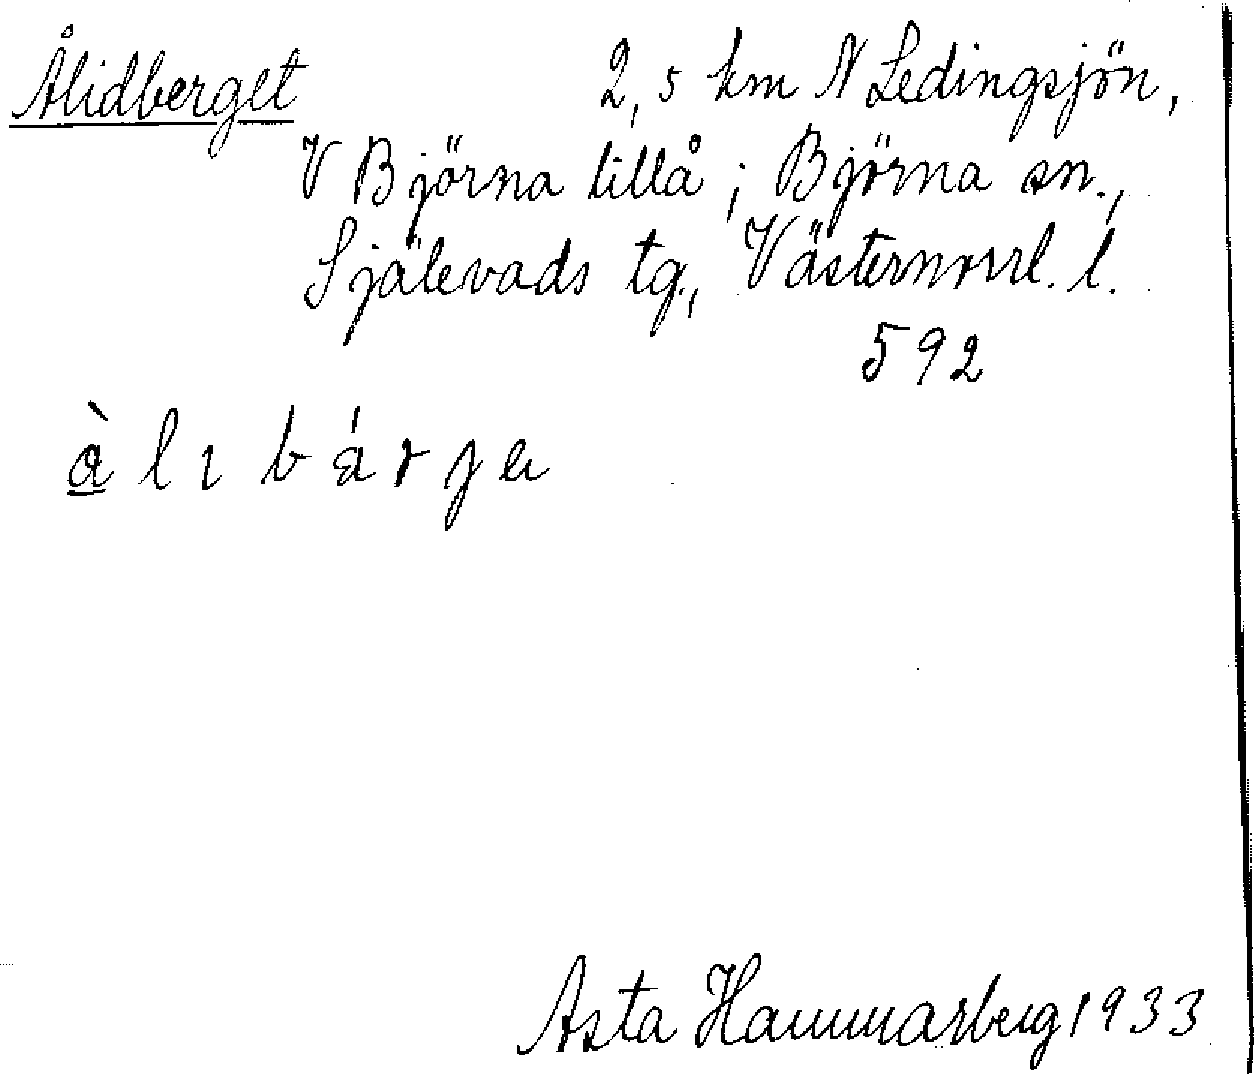 Ålidberget 2,5 km N Ledingsjön,
V Björna lillå; Björna sn.,
Själevads tg., Västernorrl. l.
592
Asta Hammarberg 1933